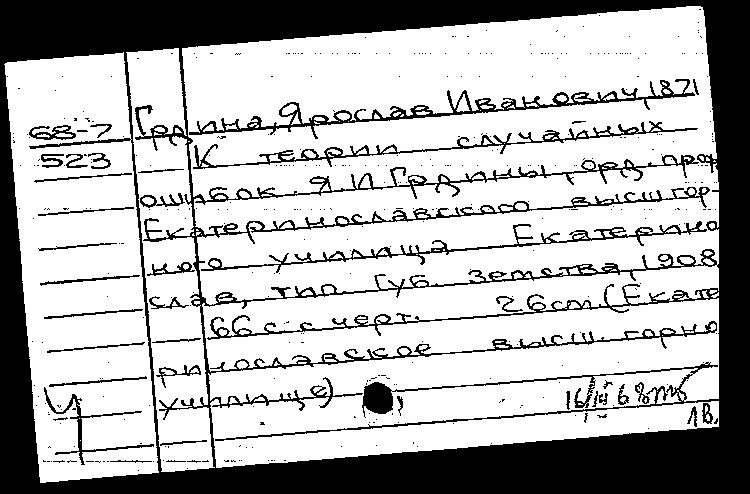 68-7 Грдина, Ярослав Иванович, 1871
523 К теории случайных
ошибок. Я И Грдины, орд. проф
Екатеринославского высш гор-
ного училища Екатерино
слав, тип. Губ. земства, 1908
66 с. с черт. 26см. (Екате
ринославское высш. горно
училище)
Ч
16/III 68
1В.